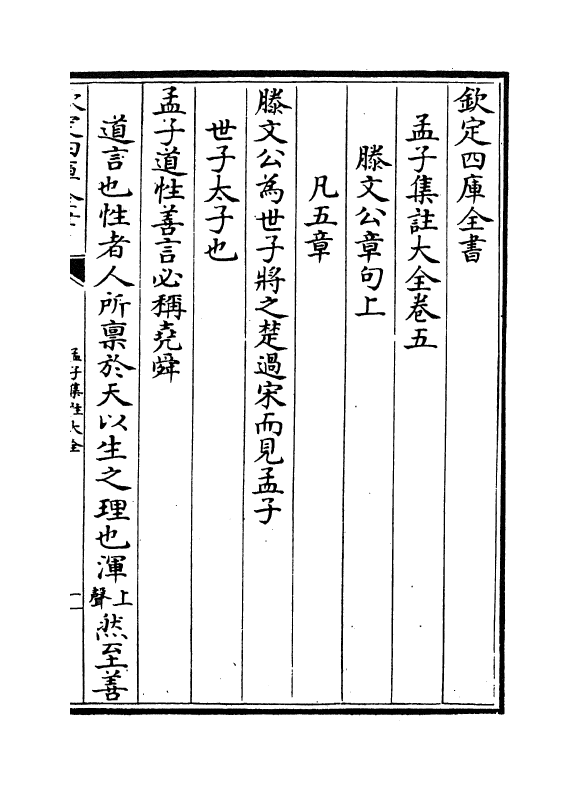 欽定四庫全書
孟子集註大全卷五
滕文公章句上
凡五章
滕文公為世子將之楚過宋而見孟子
世子太子也
孟子道性善言必稱堯舜
道言也性者人所稟於天以生之理也渾上聲然至善
孟子集註大全